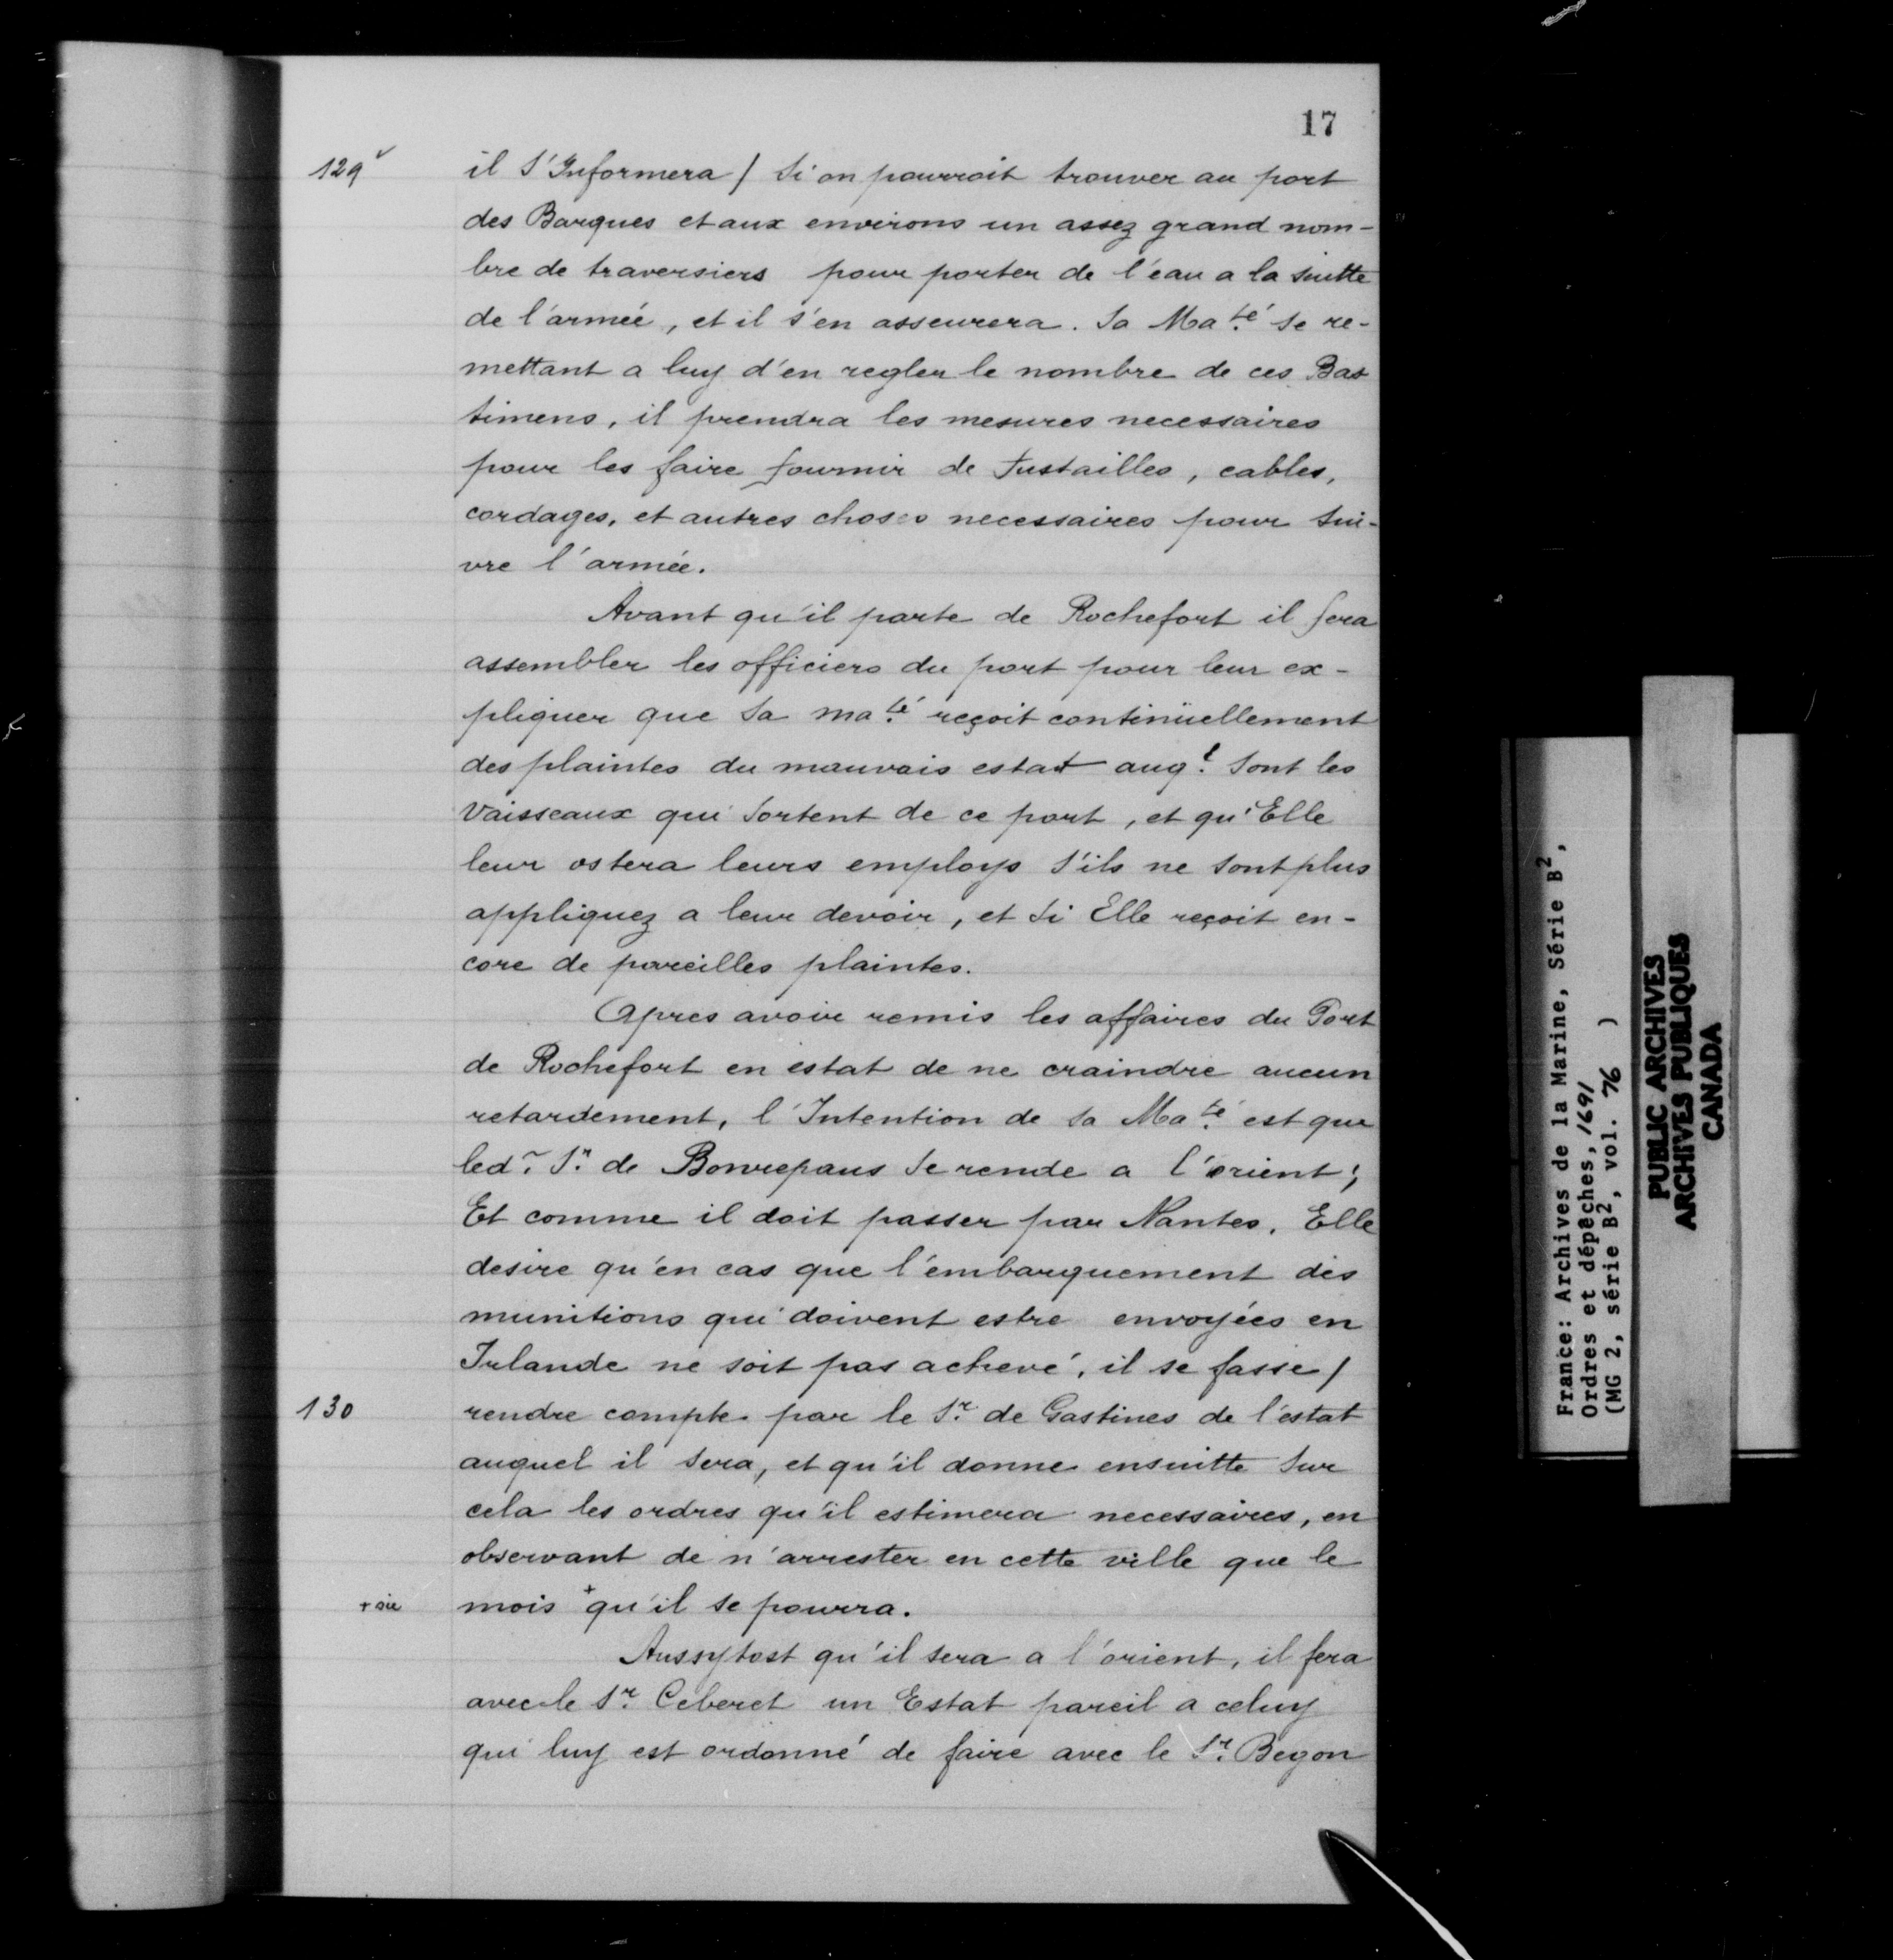 17
129v
il S'Informera / Si on pourroit trouver au port
des Barques et aux environs un assez grand nom-
bre de traversiers pour porter de l'eau a la suitte
de l'armée, et il s'en asseurera. Sa Ma.té se re-
mettant a luy d'en regler le nombre de ces Bas
timens, il prendra les mesures necessaires
pour les faire fournir de futailles, cables,
cordages, et autres choses necessaires pour sui-
vre l'armée.
Avant qu'il parte de Rochefort il fera
assembler les officiers du port pour leur ex-
pliquer que Sa ma.té reçoit continüellement
des plaintes du mauvais estat auq.l Sont les
Vaisseaux qui Sortent de ce port, et qu'Elle
leur ostera leurs employs S'ils ne Sont plus
appliquez a leur devoir, et Si Elle reçoit en-
core de pareilles plaintes.
Apres avoir remis les affaires du Port
de Rochefort en estat de ne craindre aucun
retardement, l'Intention de Sa Ma.té est que
led. Sr. de Bonrepaus Se rende a l'orient;
Et comme il doit passer par Nantes, Elle
desire qu'en cas que l'embarquement des
munitions qui doivent estre envoyées en
Irlande ne soit pas achevé, il se fasse /
130
rendre compte par le Sr. de Gastines de l'estat
auquel il Sera, et qu'il donne ensuitte Sur
cela les ordres qu'il estimera necessaires, en
observant de n'arrester en cette ville que le
+ sic
mois + qu'il se pourra.
Aussytost qu'il sera a l'orient, il fera
avec le Sr. Ceberet un Estat pareil a celuy
qui luy est ordonné de faire avec le Sr. Begon
France: Archives de la Marine, Série B2,
Ordres et dépêches, 1691
(MG 2, série B2, vol. 76 )
PUBLIC ARCHIVES
ARCHIVES PUBLIQUES
CANADA